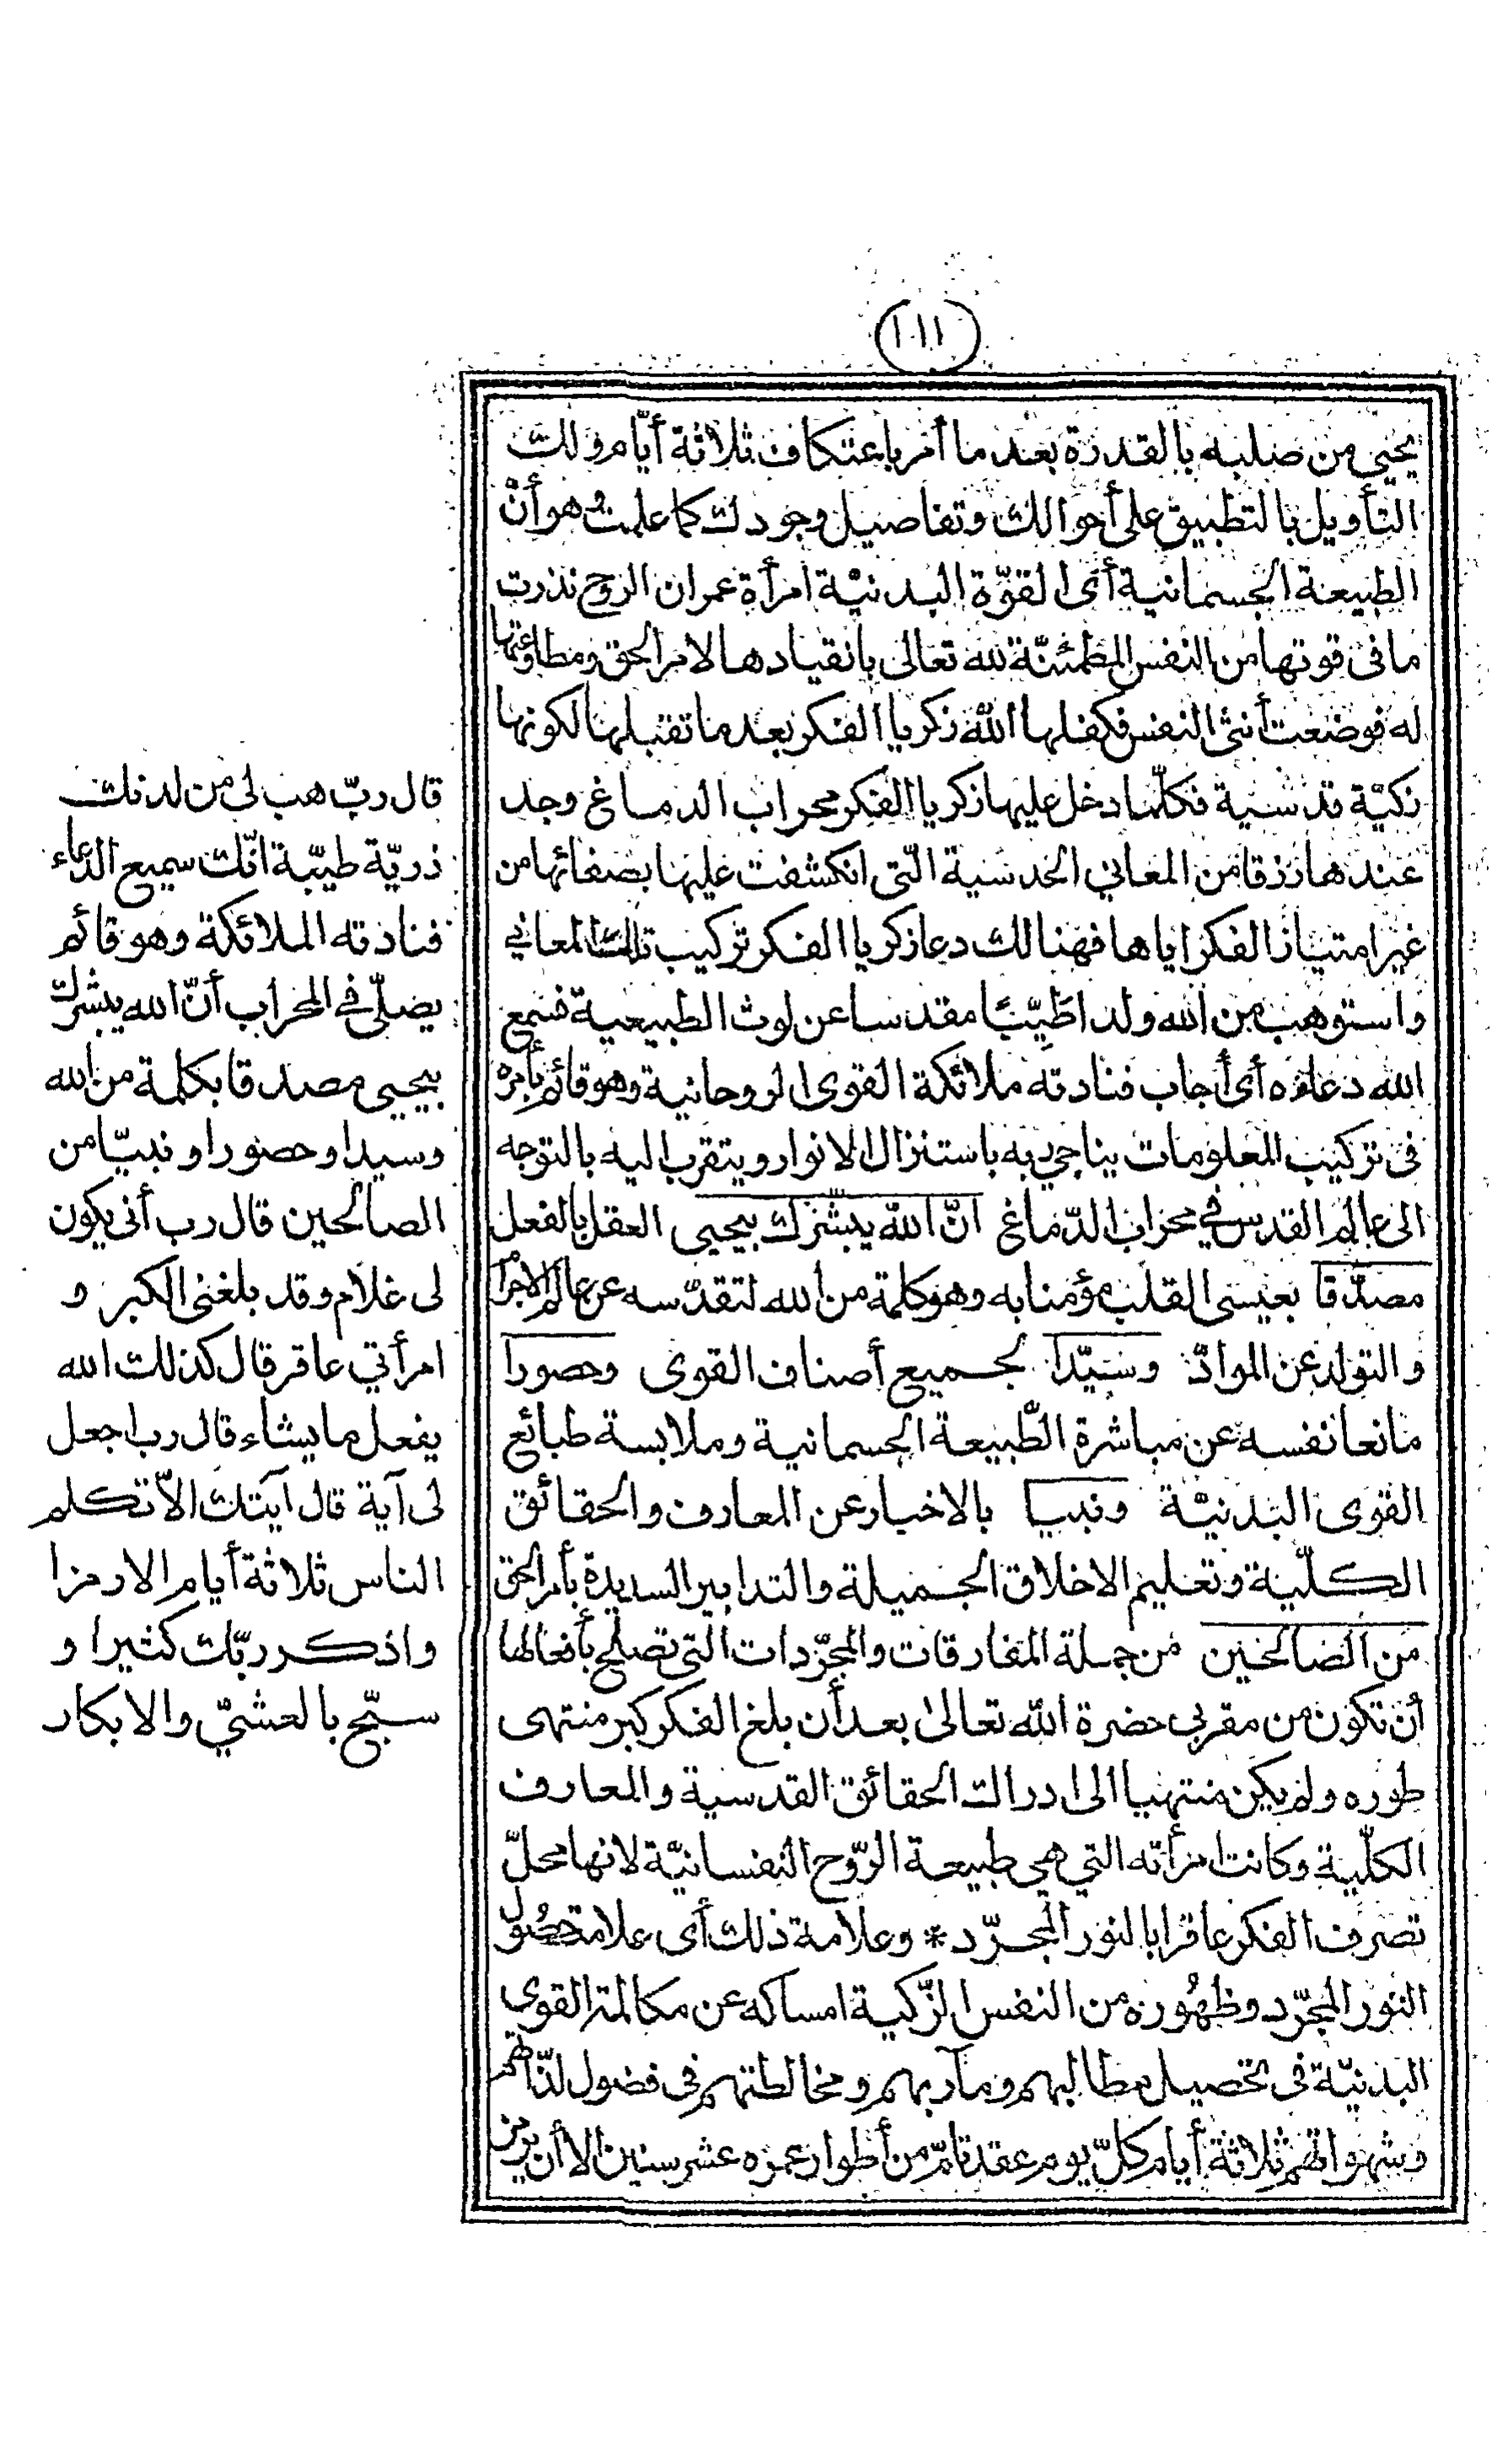 (١١١)
يحيى من صلبه بالقدرة بعد ما أمر باعتكاف ثلاثة أيّام ولك
التأويل بالتطبيق على أحوالك وتفاصيل وجودك كما علمت وهو أنّ
الطبيعة الجسمانية أى القوّة البدنيّة امرأة عمران الروح نذرت
ما فى قوتها من النفس المطمئنّة لله تعالى بانقيادها لامر الحق ومطاوعتها
له فوضعت أنثى النفس فكفلها الله زكريا الفكر بعد ما تقبلها لكونها
زكيّة قدسية فكلّما دخل عليها زكريا الفكر محراب الدماغ وجد
عندها رزقا من المعاني الحدسية الّتى انكشفت عليها بصفائها من
غير امتياز الفكر اياها فهنالك دعا زكريا الفكر تركيب تلك المعاني
واستوهب من الله ولدا طَيِّبًا مقدسا عن لوث الطبيعية فسمع
الله دعاءه أى أجاب فنادته ملائكة القوى الروحانية وهو قائم بأمره
فى تركيب المعلومات يناجي ربه باستنزال الانوار ويتقرب اليه بالتوجه
الى عالم القدس في محراب الدّماغ انّ الله يبشّرك بيحيى العقل بالفعل
مصدّقا بعيسى القلب مؤمنا به وهو كلمة من الله لتقدّسه عن عالم الاجرام
والتولد عن الموادّ وسيّدا لجميع أصناف القوى وحصورا
مانعا نفسه عن مباشرة الطّبيعة الجسمانية وملابسة طبائع
القوى البدنيّة ونبيا بالاخبار عن المعارف والحقائق
الكلّية وتعليم الاخلاق الجميلة والتدابير السديدة بأمر الحق
من الصالحين من جملة المفارقات والمجرّدات التى تصلح بأفعالها
أن تكون من مقربى حضرة الله تعالى بعد أن بلغ الفكر كبر منتهى
طوره ولم يكن منتهيا الى ادراك الحقائق القدسية والمعارف
الكلّية وكانت امرأته التي هي طبيعة الرّوح النفسانيّة لانها محلّ
تصرف الفكر عاقرا بالنور المجرّد * وعلامة ذلك أى علامة حصول
النور المجرّد وظهوره من النفس الزّكية امساكه عن مكالمة القوى
البدنيّة فى تحصيل مطالبهم ومآربهم ومخالطتهم فى فضول لذّاتهم
وشهواتهم ثلاثة أيام كلّ يوم عقد تامّ من أطوار عمره عشر سنين الا أن يرمز
قال ربّ هب لى من لدنك
ذريّة طيّبة انّك سميع الدعاء
فنادته الملائكة وهو قائم
يصلّى في المحراب أنّ الله يبشرك
بيحيى مصدقا بكلمة من الله
وسيدا وحصورا ونبيّا من
الصالحين قال رب أنى يكون
لى غلام وقد بلغنى الكبر و
امرأتي عاقر قال كذلك الله
يفعل ما يشاء قال رب اجعل
لى آية قال آيتك الاّ تكلم
الناس ثلاثة أيام الا رمزا
واذكر ربّك كثيرا و
سبّح بالعشيّ والابكار